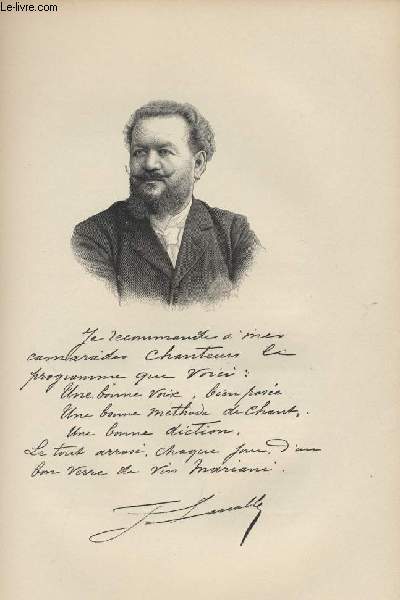 Le-livre.com
Je recommande à mes
camarades Chanteurs le
programme que Voici :
Une bonne Voix, bien posée
Une bonne Méthode de Chant.
Une bonne diction.
Le tout arrosé, chaque jour, d'un
bon Verre de Vin Mariani.
J. Lassalle